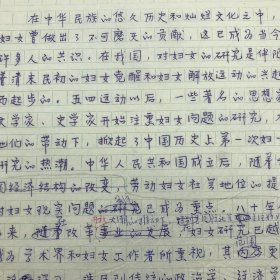 在中华民族的悠久历史和灿烂文化之中，
妇女曾做出了不可磨灭的贡献，这已成为当今
许多人的共识。在我国，对妇女的研究是伴随
着清末民初的妇女觉醒和妇女解放运动的兴起
而起步的。五四运动以后，一些著名的思想家
文学家、史学家开始注重妇女问题的研究，
他们的带动下，掀起了中国历史上第一次妇女
研究的热潮。中华人民共和国成立后，随着
经济结构的改变，劳动妇女社会地位的提
妇女现实问题的研究已成为重点。八十年
来，随着改革事业的发展，
为学术界和妇女工作者所重视，其内容